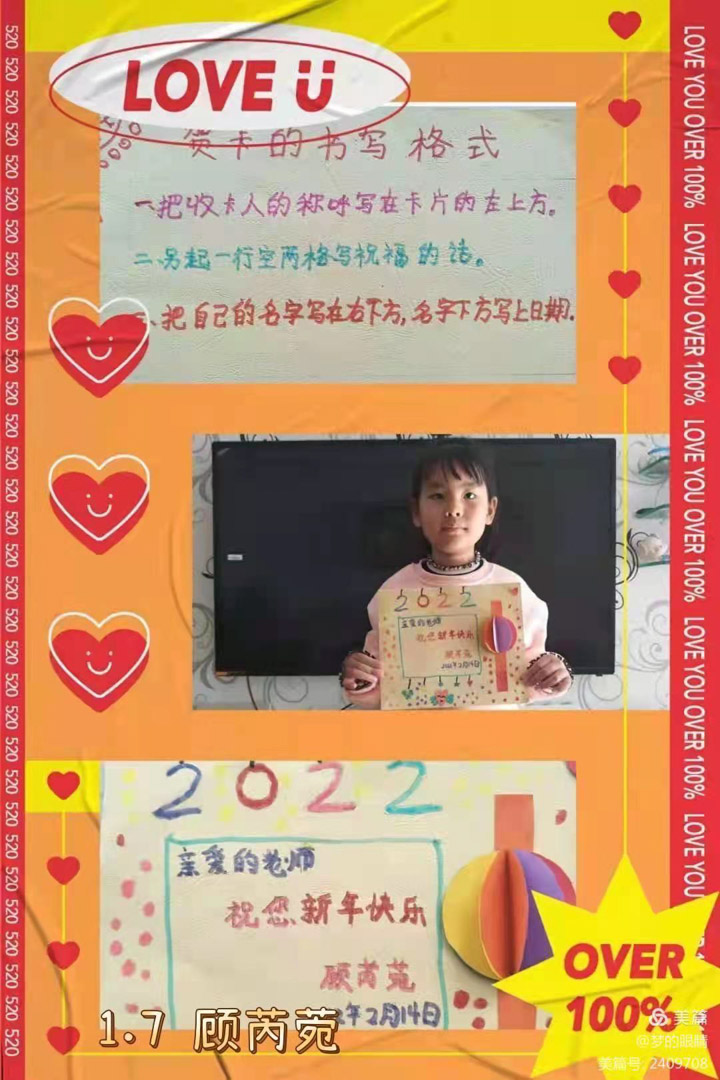 LOVE Ü
贺卡的书写格式
一、把收卡人的称呼写在卡片的左上方。
二、另起一行空两格写祝福的话。
、把自己的名字写在右下方,名字下方写上日期.
2022
亲爱的老师
祝您新年快乐
顾芮苑
2022年2月14日
2022
亲爱的老师
祝您新年快乐
顾芮苑
2年2月14日
1.7 顾芮菀
OVER
100%
美篇
@梦的眼睛
美篇号 2409708
520 520 520 520 520 520 520 520 520 520 520 520 520 520 520 520 520 520 520 520 520 520 520 520 520 520 520 520 520 520 520 520
LOVE YOU OVER 100% LOVE YOU OVER 100% LOVE YOU OVER 100% LOVE YOU OVER 100% LOVE YOU